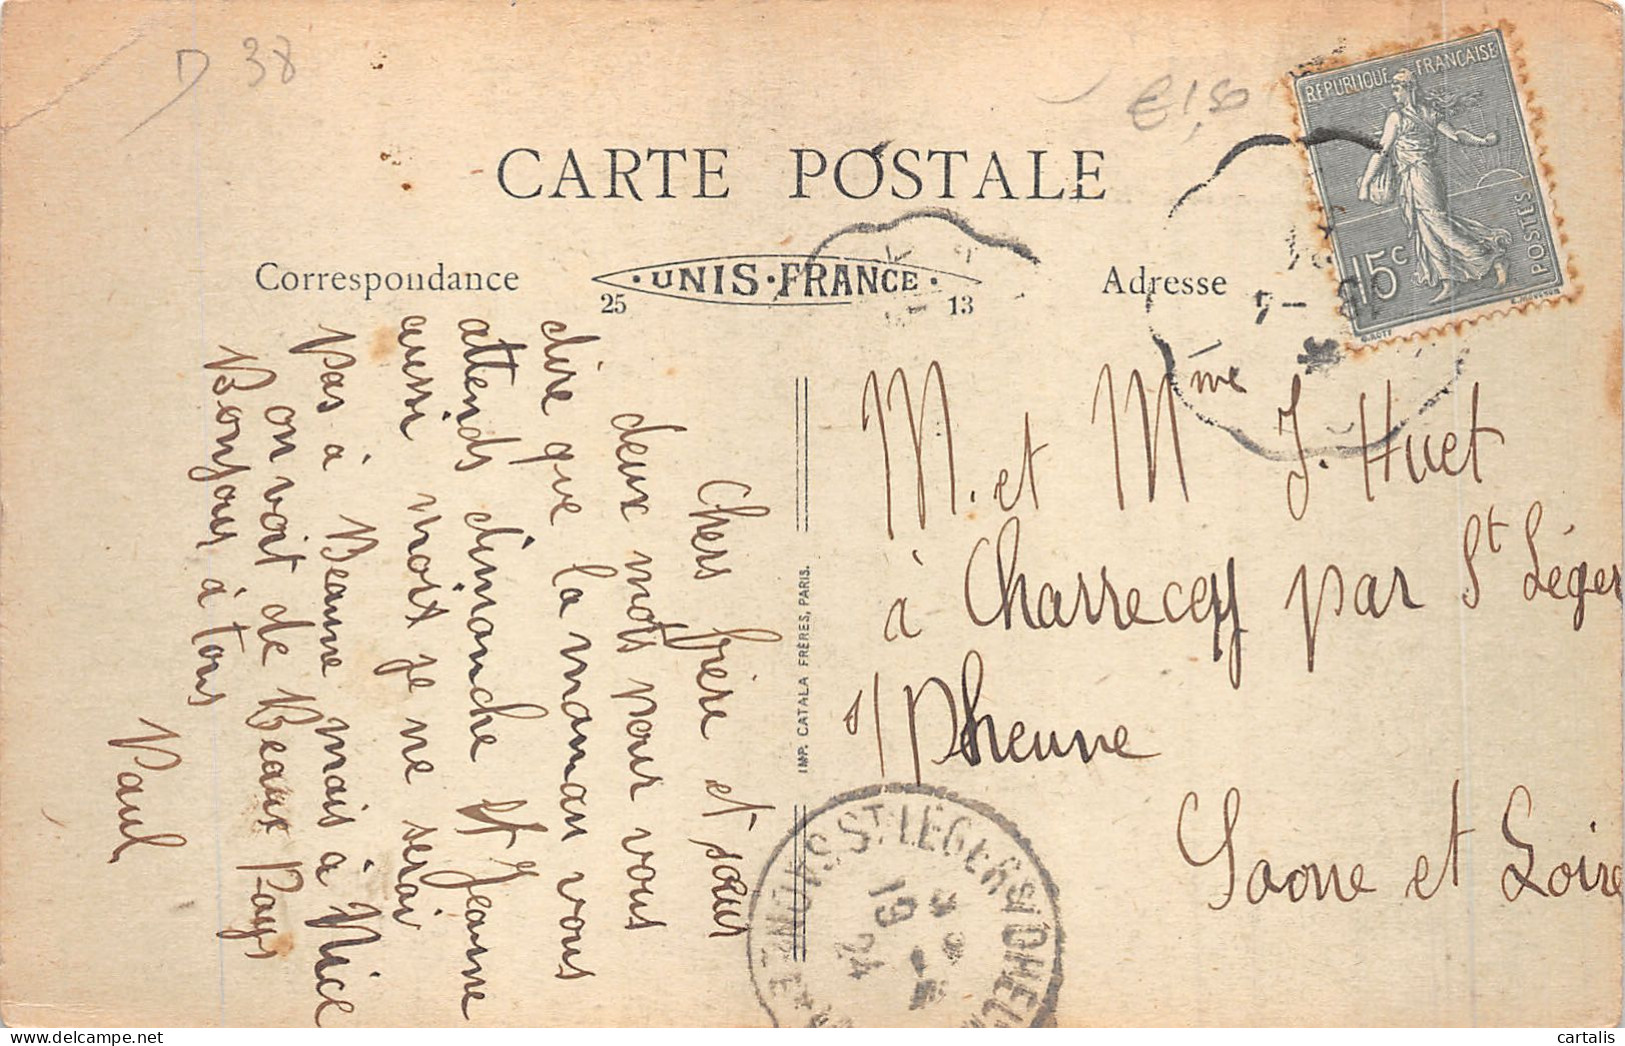 D 38
€1,50
REPUBLIQUE FRANÇAISE
POSTES
15c
CARTE POSTALE
Correspondance
·UNIS·FRANCE·
25 13
Adresse
Chers frère et sœur
deux mots pour vous
dire que la maman vous
attends dimanche et Jeanne
aussi moi je ne serai
pas à Beaune mais à Nice
on voit de Beaux Pays
Bonjour à tous
Paul
IMP. CATALA FRÈRES, PARIS.
M. et Mme J. Huet
à Charrecey par St Léger
s/Dheune
Saone et Loire
ST LÉGER S/ DHEUNE
19
24
cartalis